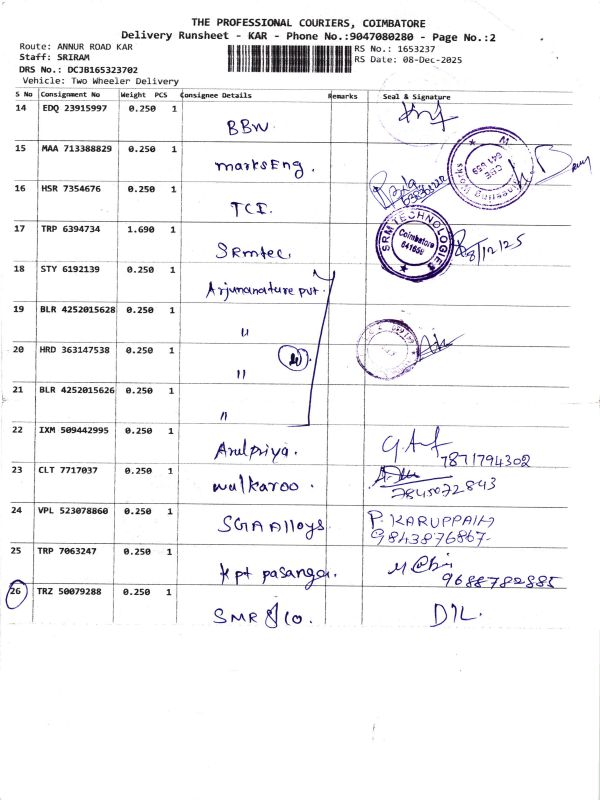 THE PROFESSIONAL COURIERS, COIMBATORE
Delivery Runsheet - KAR - Phone No.:9047080280 - Page No.:2
Route: ANNUR ROAD KAR
RS No.: 1653237
Staff: SRIRAM
RS Date: 08-Dec-2025
DRS No.: DCJB165323702
Vehicle: Two Wheeler Delivery
S No Consignment No Weight PCS Consignee Details Remarks Seal & Signature
14 EDQ 23915997 0.250 1
BBW.
15 MAA 713388829 0.250 1
marksEng.
16 HSR 7354676 0.250 1
TCI.
17 TRP 6394734 1.690 1
SRmtec.
SRM TECHNOLOGIES
Coimbatore
641659
8/12/25
18 STY 6192139 0.250 1
Arjunanature pvt.
19 BLR 4252015628 0.250 1
"
20 HRD 363147538 0.250 1
"
21 BLR 4252015626 0.250 1
"
22 IXM 509442995 0.250 1
Arulpriya.
7871794302
23 CLT 7717037 0.250 1
walkaroo.
7845072843
24 VPL 523078860 0.250 1
SGA Alloys
P. KARUPPAIH
9843876867
25 TRP 7063247 0.250 1
Kpt pasangai.
9688782885
26 TRZ 50079288 0.250 1
SMR & Co.
D/L.